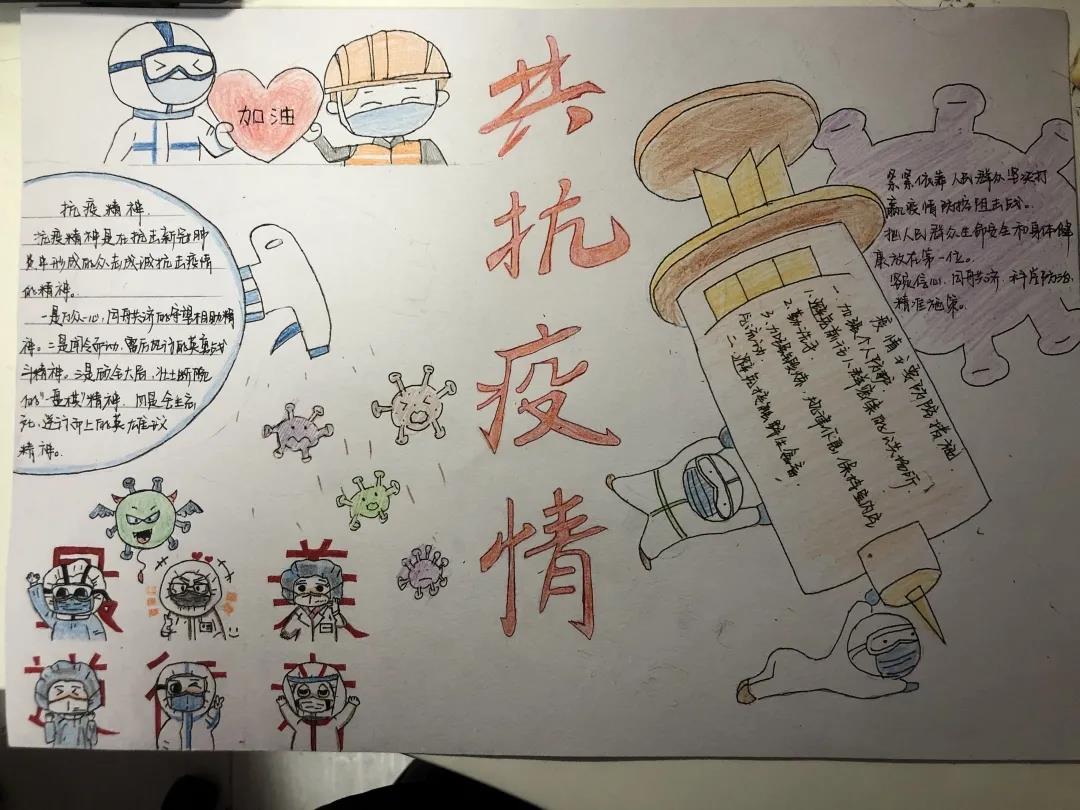 加油
共抗疫情
抗疫精神.
抗疫精神是在抗击新冠肺
炎中形成的众志成诚抗击疫情
的精神。
一是万众一心,同舟共济的守望相助精
神。二是闻令而动,雷厉风行的英勇战
斗精神。三是顾全大局,壮士断腕
的“一盘棋”精神,四是舍生忘
死,逆行而上的英雄主义
精神。
紧紧依靠人民群众坚决打
赢疫情防控阻击战。
把人民群众生命安全和身体健
康放在第一位。
坚定信心,同舟共济,科学防治,
精准施策。
疫情主要预防措施
一、加强个人防护
1.避免前访人群密集的公共场所
2.勤洗手
3.加强锻炼,规律作息,保持室内空
气流动,
二、避免接触野生禽畜,
最 美
行